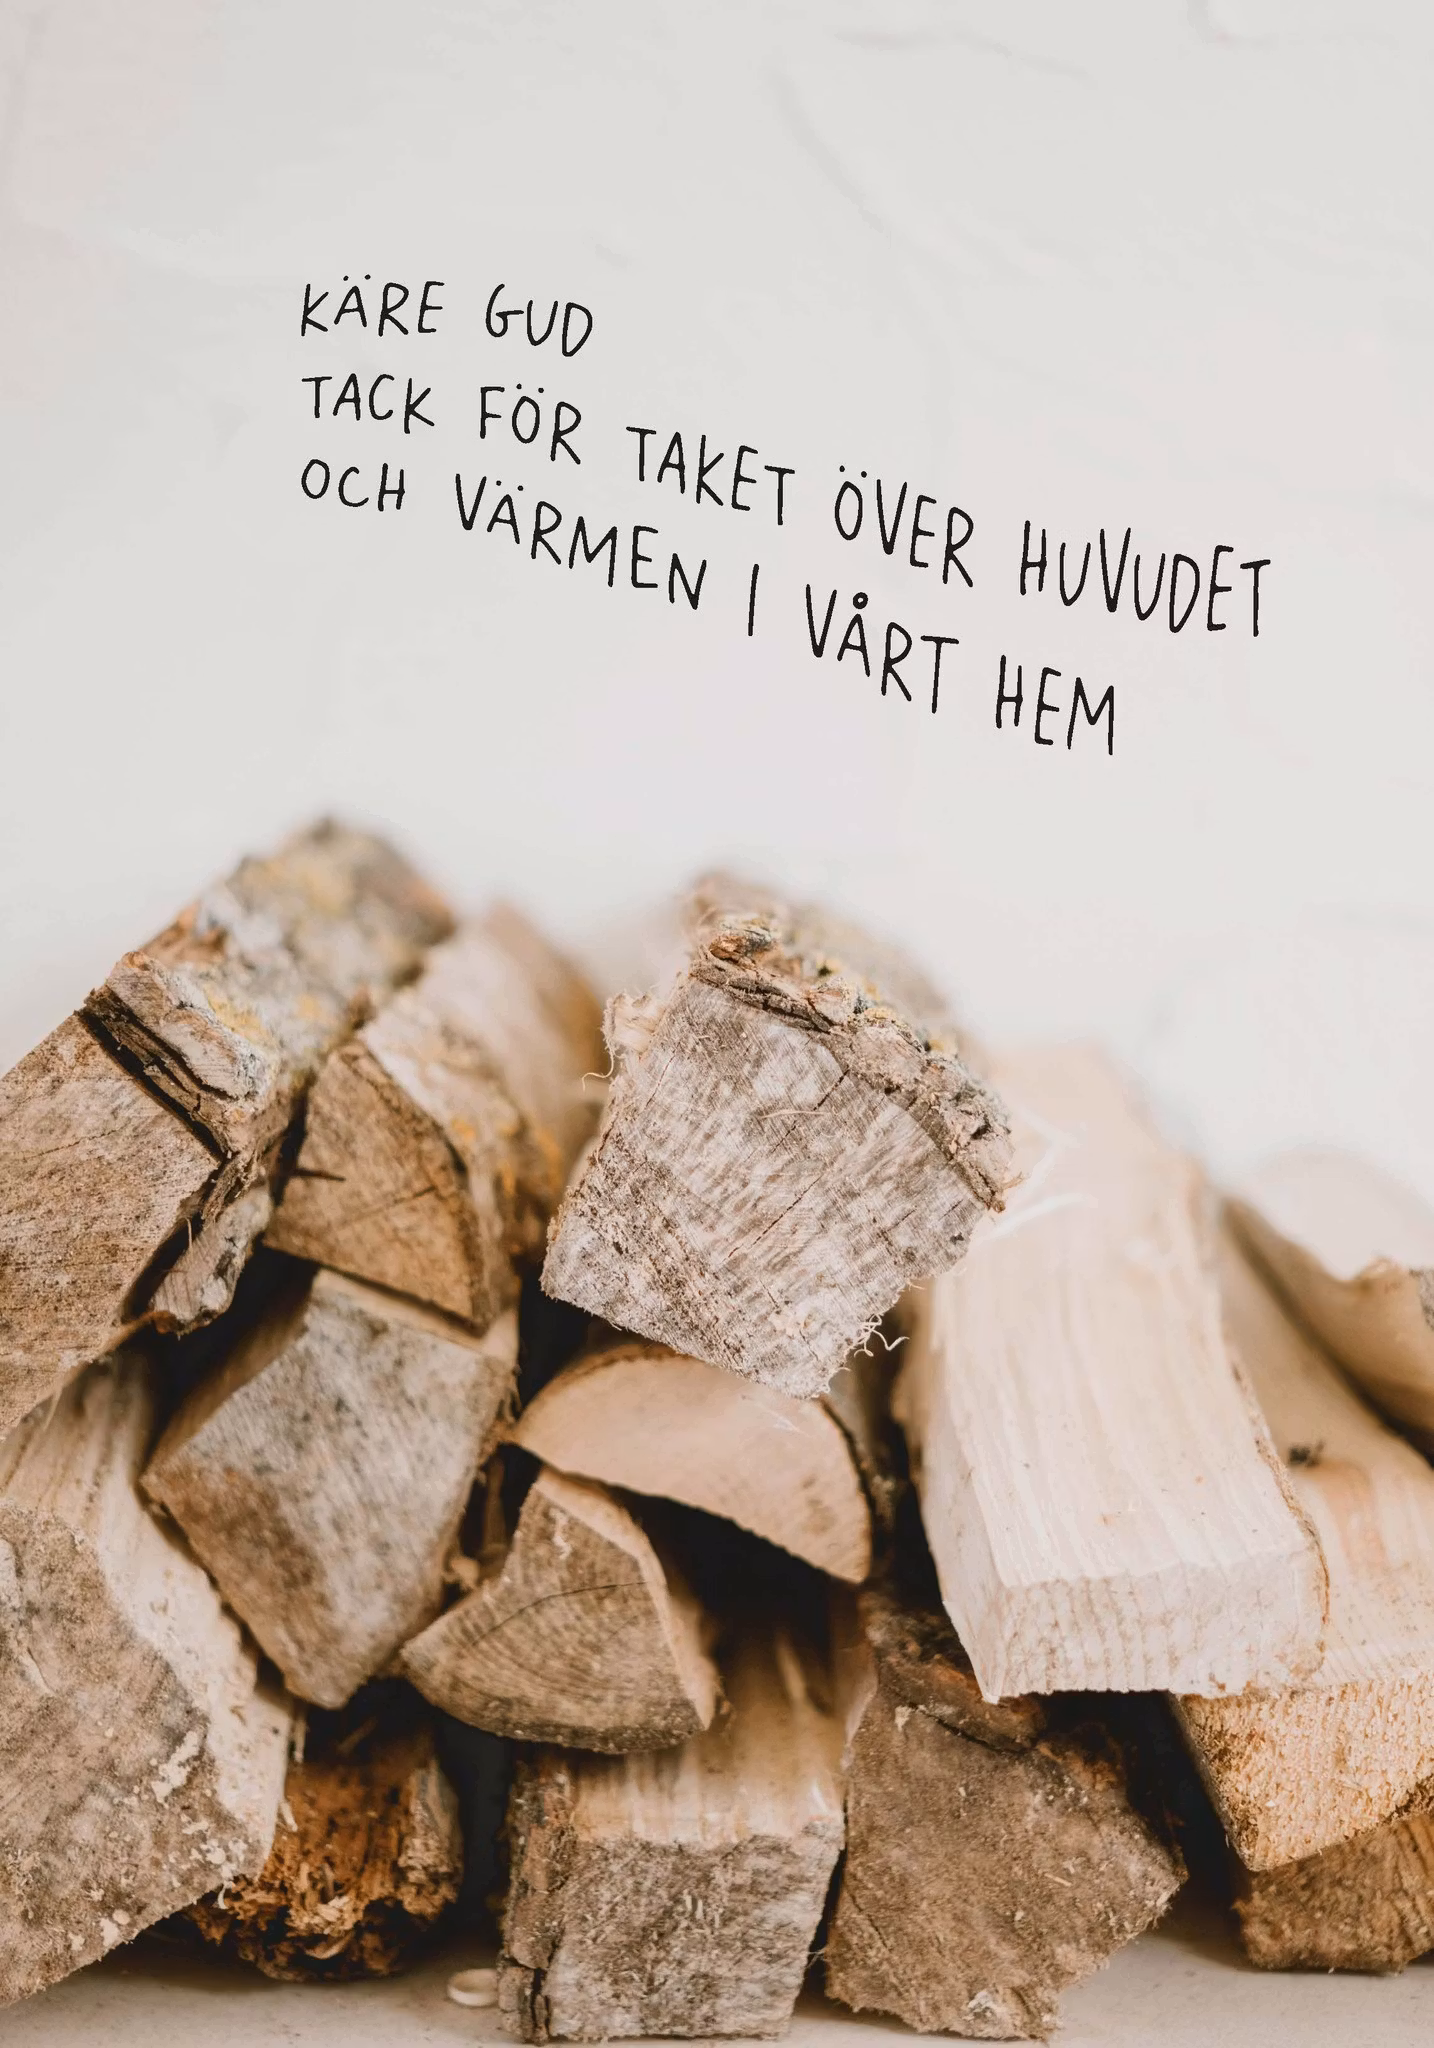 KÄRE GUD
TACK FÖR TAKET ÖVER HUVUDET
OCH VÄRMEN I VÅRT HEM